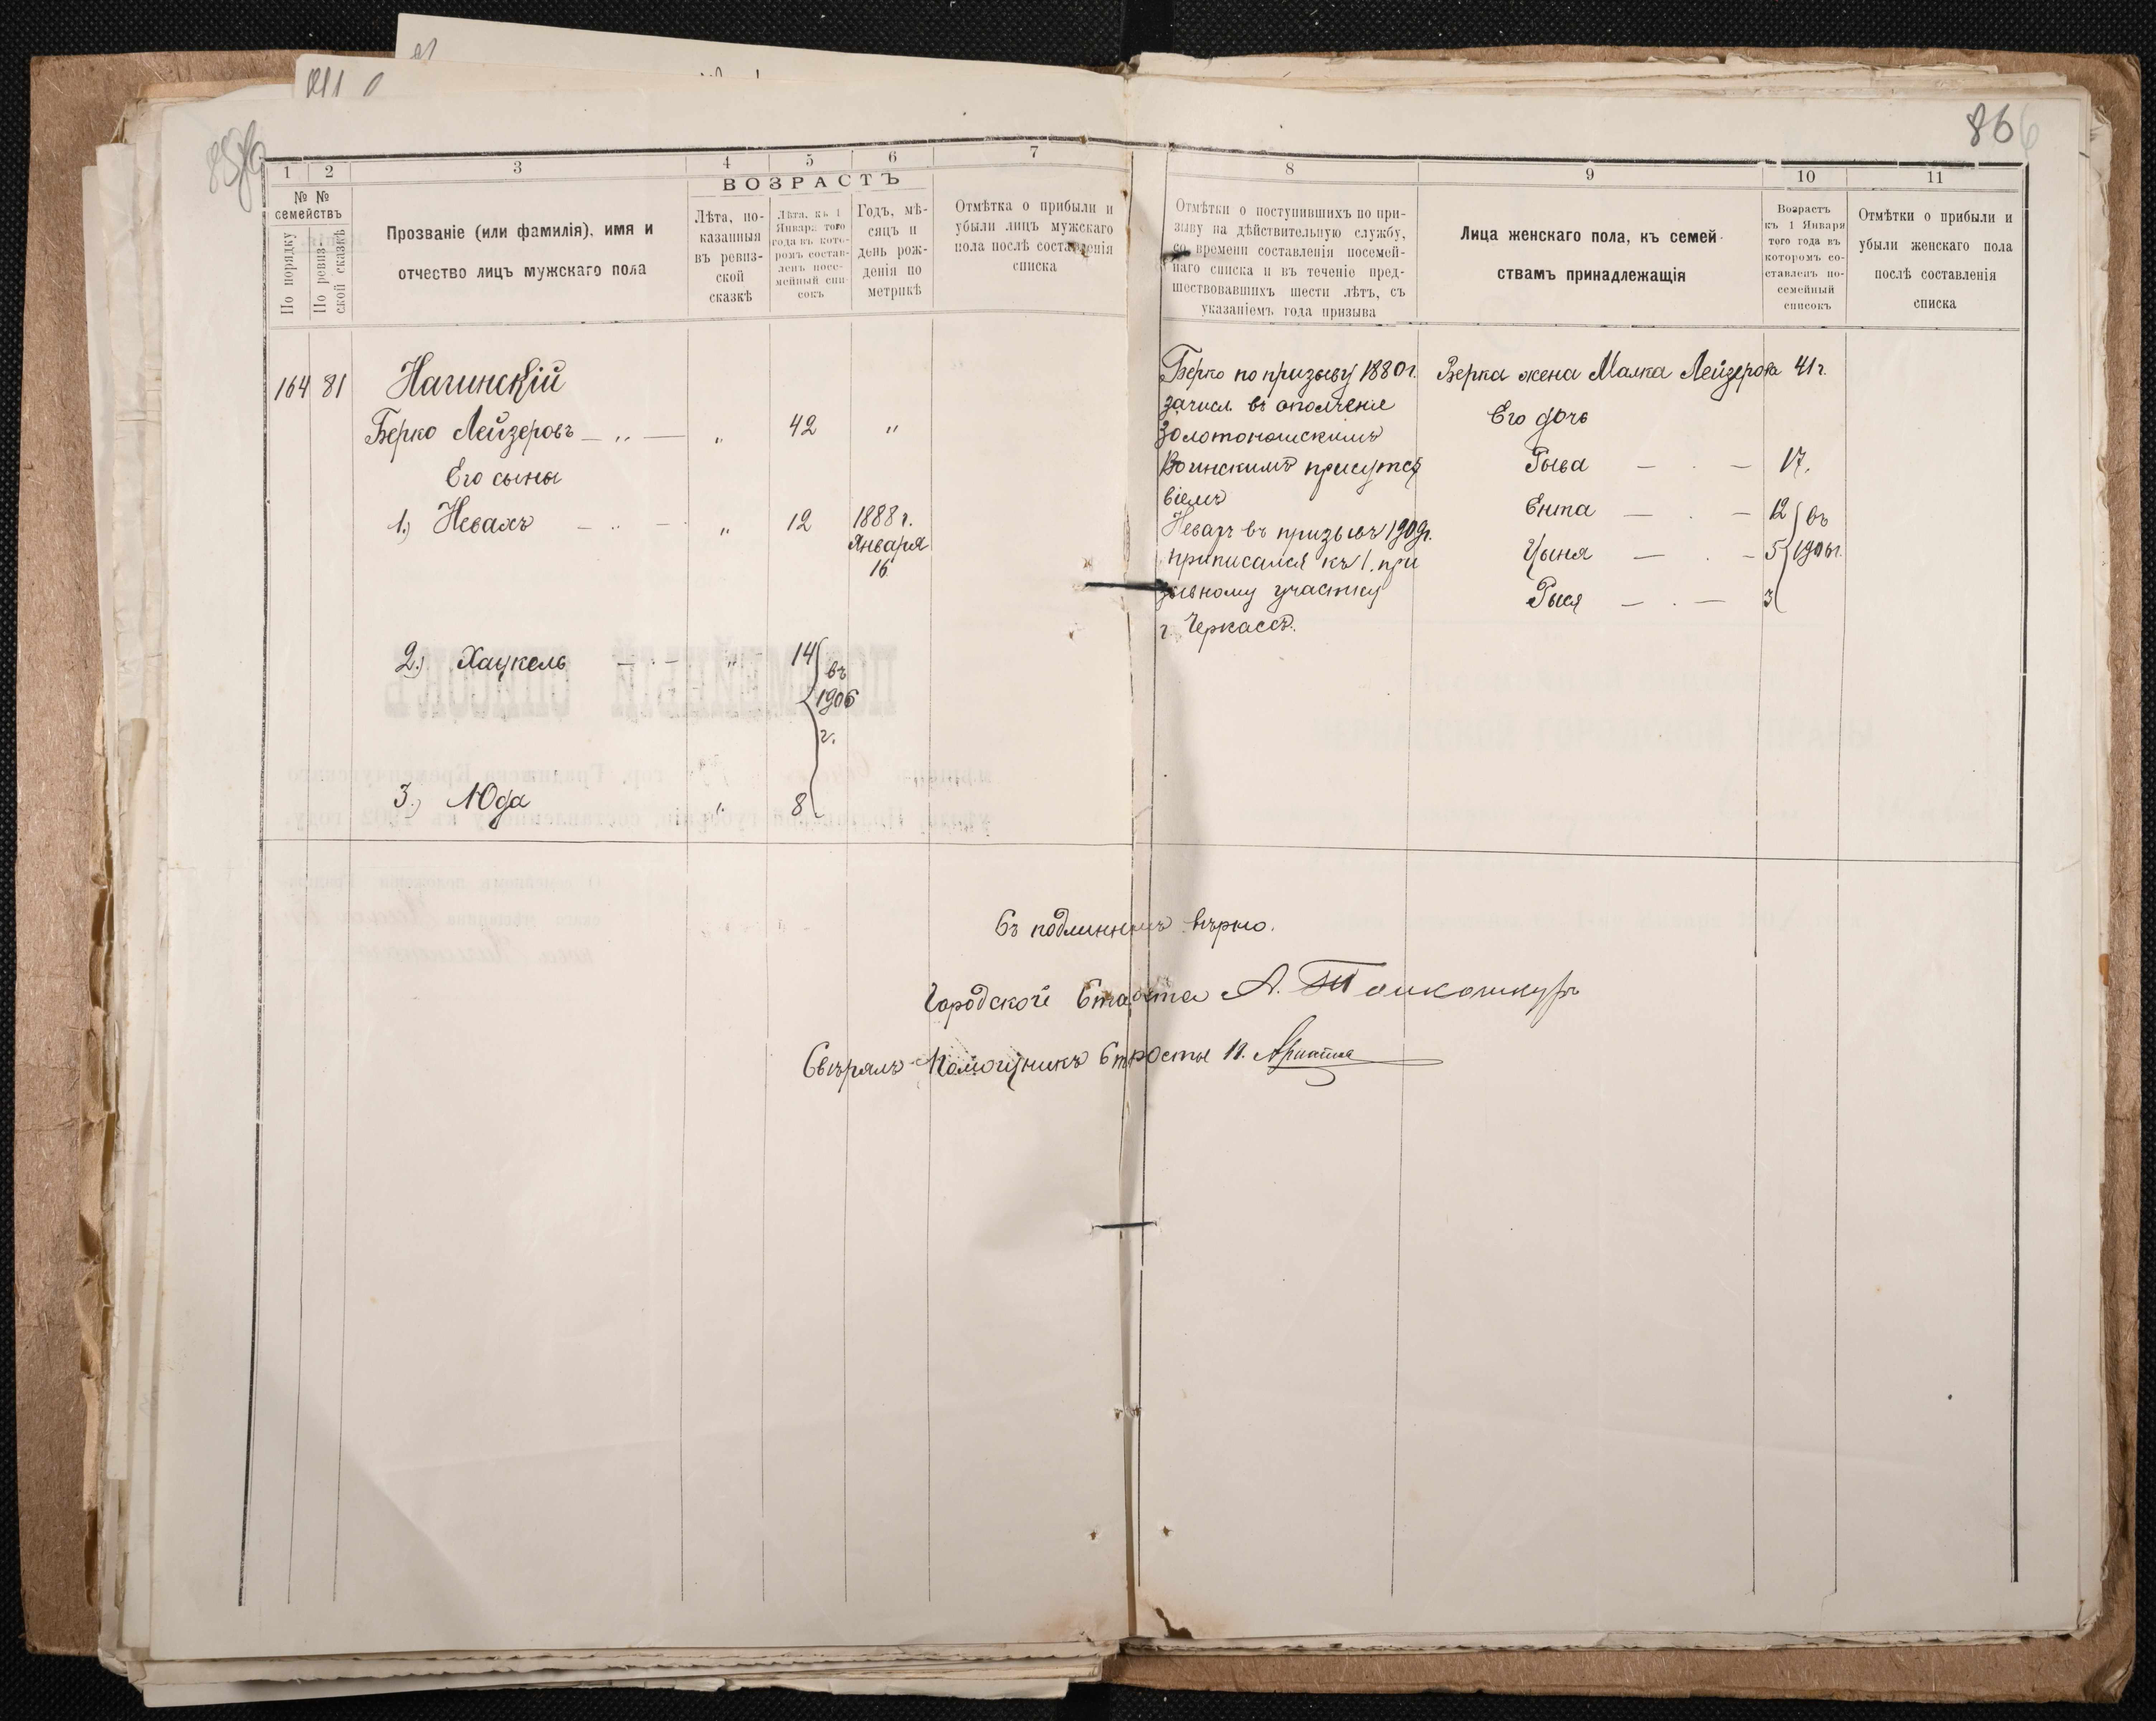 866
1
2
3
4
5
6
7
8
9
10
11
№ №
семействъ
По порядку
По ревизской сказкѣ
Прозваніе (или фамилія), имя и
отчество лицъ мужскаго пола
ВОЗРАСТЪ
Лѣта, по-
казанныя
въ ревиз-
ской
сказкѣ
Лѣта, къ 1
Января того
года въ кото-
ромъ состав-
ленъ посе-
мейный спи-
сокъ
Годъ, мѣ-
сяцъ и
день рож-
денія по
метрикѣ
Отмѣтка о прибыли и
убыли лицъ мужскаго
пола послѣ составленія
списка
Отмѣтки о поступившихъ по при-
зыву на дѣйствительную службу,
со времени составленія посемей-
наго списка и въ теченіе пред-
шествовавшихъ шести лѣтъ, съ
указаніемъ года призыва
Лица женскаго пола, къ семей-
ствамъ принадлежащія
Возрастъ
къ 1 Января
того года въ
которомъ со-
ставленъ по-
семейный
списокъ
Отмѣтки о прибыли и
убыли женскаго пола
послѣ составленія
списка
164 81 Нагинскій
Берко Лейзеровъ — „ — „ 42 „
Его сыны
1.) Невахъ — „ — „ 12 1888 г.
Января
16
2.) Хаукель — „ — „ 14 въ
1906
г.
3.) Юда „ 8
Берко по призыву 1880 г.
зачисл. въ ополченіе
Золотоношскимъ
Воинскимъ присутст
віемъ
Невахъ въ призывъ 1909 г.
приписался къ 1. при
зывному участку
г. Черкассъ.
Берка жена Малка Лейзерова 41 г.
Его дочь
Рыва — . — 17.
Ента — . — 12 въ
Цыня — . — 5 1906 г.
Рыся — . — 3
Съ подлиннымъ вѣрно.
Городской Староста А. Толкошкуръ
Свѣрялъ Помощникъ Старосты